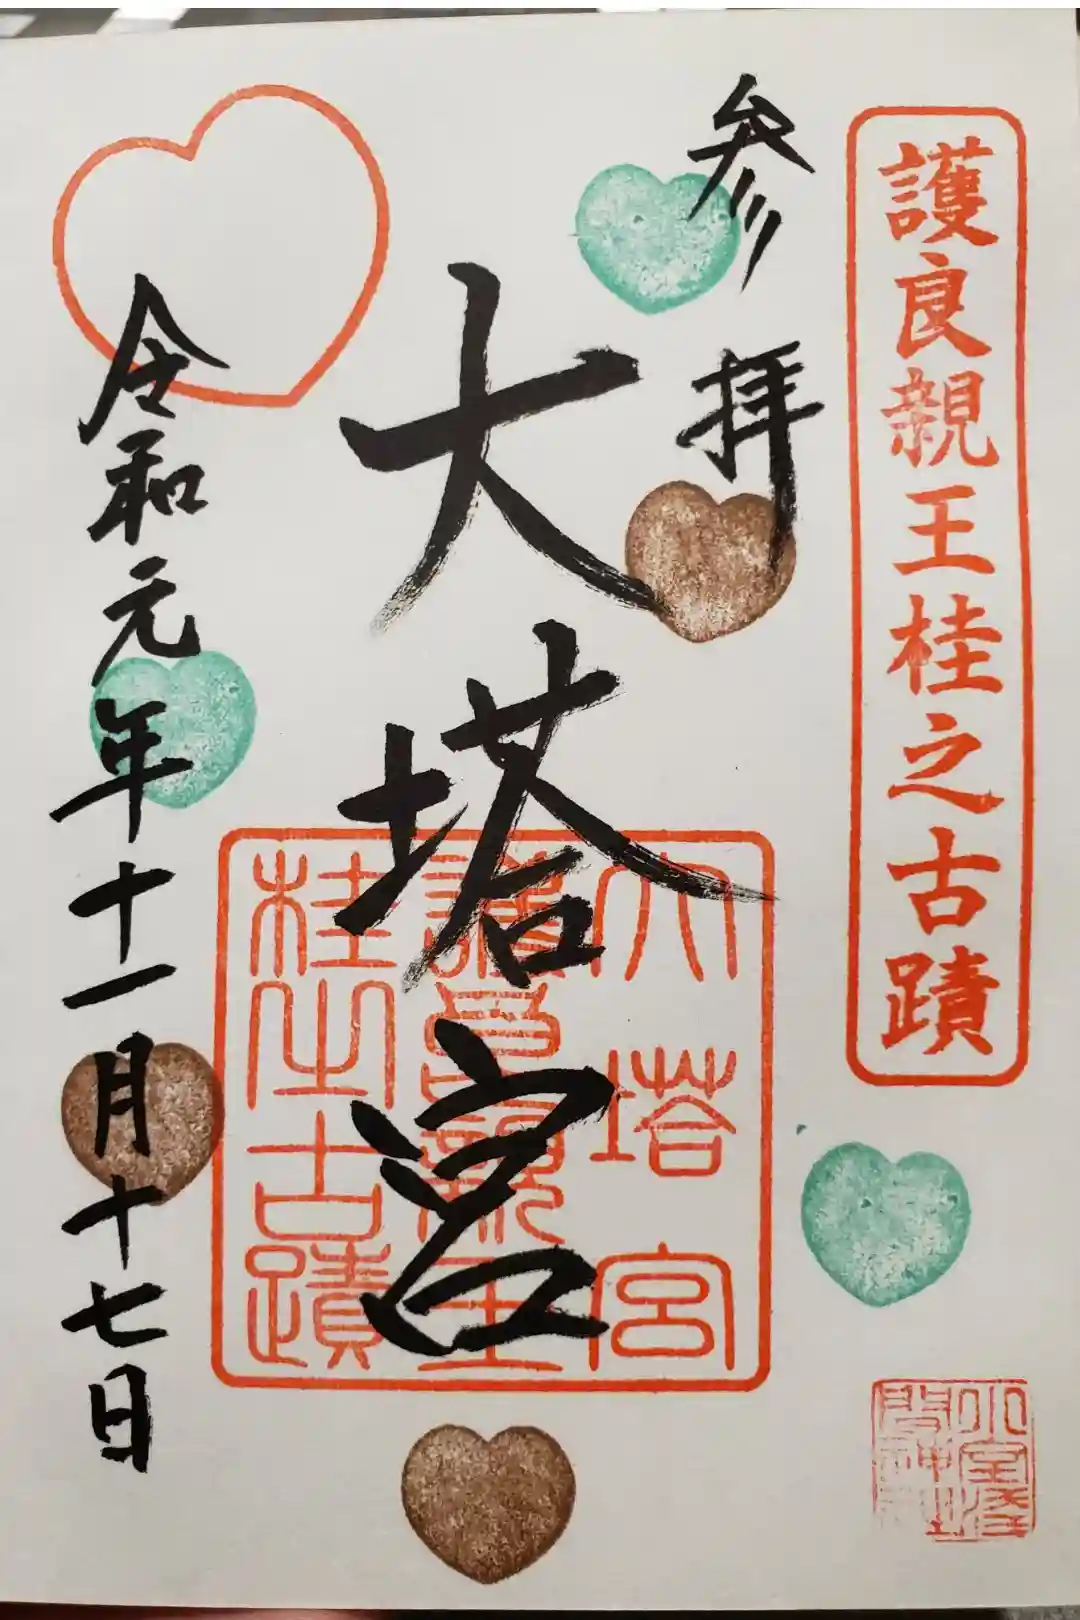 護良親王桂之古蹟
参拝
大塔宮
大塔宮
護良親王
桂之古蹟
令和元年十一月十七日